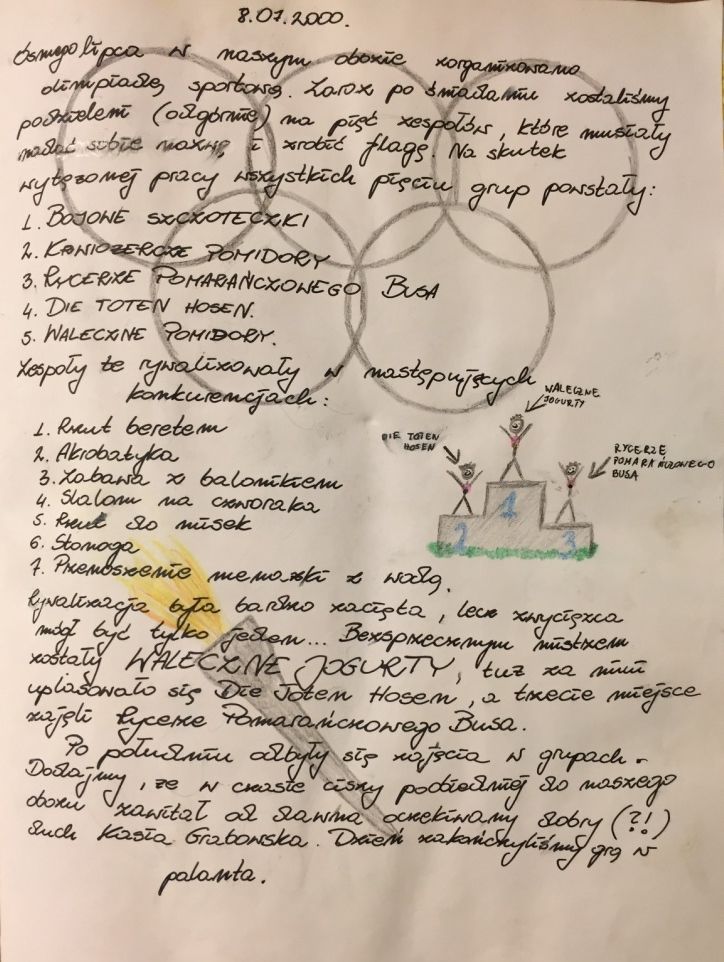 8.07.2000.
Ósmego lipca w naszym obozie zorganizowano
olimpiadę sportową. Zaraz po śniadaniu zostaliśmy
podzieleni (odgórnie) na pięć zespołów, które musiały
nadać sobie nazwę i zrobić flagę. Na skutek
wytężonej pracy wszystkich pięciu grup powstały:
1. BOJOWE SZCZOTECZKI
2. POMIDORY
3. RYCERZE POMARAŃCZOWEGO BUSA
4. DIE TOTEN HOSEN.
5. WALECZNE POMIDORY.
Zespoły te rywalizowały w następujących
konkurencjach:
1. Rzut beretem
2. Akrobatyka
3. Zabawa z balonikiem
4. Slalom na czworaka
5. Rzut do misek
6. Stonoga
7. Przenoszenie menażki z wodą.
WALECZNE
JOGURTY
DIE TOTEN
HOSEN
RYCERZE
POMARAŃCZOWEGO
BUSA
1
2
3
Rywalizacja była bardzo zacięta, lecz zwycięzca
mógł być tylko jeden... Bezsprzecznym mistrzem
zostały WALECZNE JOGURTY, tuż za nimi
uplasowało się Die Toten Hosen, a trzecie miejsce
zajęli Rycerze Pomarańczowego Busa.
Po południu odbyły się zajęcia w grupach.
Dodajmy, że w czasie ciszy pobiednej do naszego
obozu zawitał od dawna oczekiwany dobry (?!)
duch Kasia Grabowska. Dzień zakończyliśmy grą w
palanta.